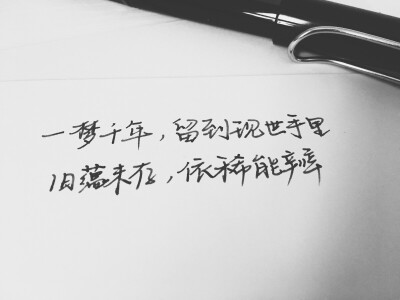 一梦千年，留到现世手里
旧蕴未存，依稀能辨